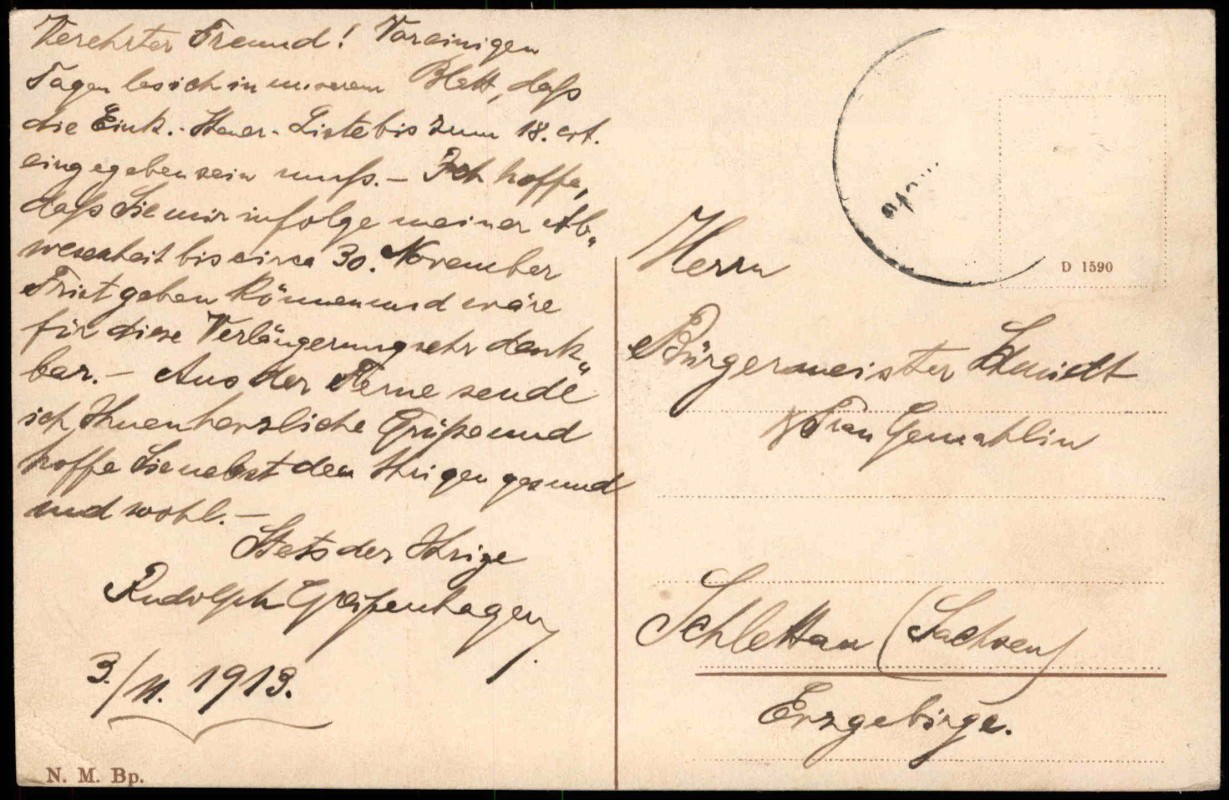 Verehrter Freund! Voreinigen
Tagen las ich in unserem Blatt, daß
die Eink.-Steuer-Liste bis zum 18. crt.
eingegeben sein muß.— Ich hoffe,
daß Sie mir infolge meiner Ab-
wesenheit bis circa 30. November
Frist geben können und wäre
für diese Verlängerung sehr dank-
bar.— Aus der Ferne sende
ich Ihnen herzliche Grüße und
hoffe Sie nebst den Ihrigen gesund
und wohl.—
Stets der Ihrige
Rudolph
3./11. 1913.
N. M. Bp.
D 1590
Herrn
Bürgermeister Schmidt
& Frau Gemahlin
Schlettau (Sachsen)
Erzgebirge.